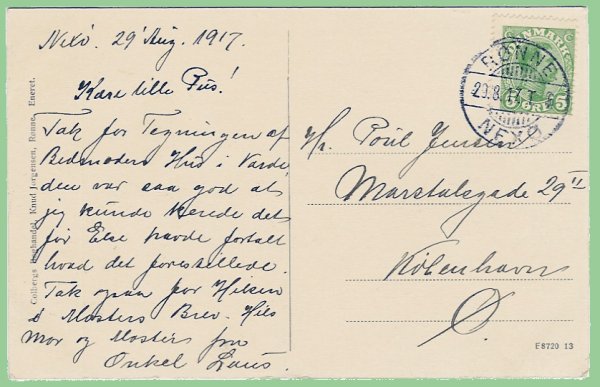 Nexö. 29' Aug. 1917.
Kære lille Pus!
Tak for Tegningen af
Bedmoders Hus i Varde
den var saa god at
jeg kunde kende det
før Else havde fortalt
hvad det forestillede.
Tak ogsaa for Hilsen
i Mosters Brev. Hils
Mor og Moster fra
Onkel Laus.
Colbergs Boghandel, Knud Jørgensen, Rønne. Eneret.
DANMARK
5 ØRE 5
RØNNE
29.8.17.
NEXØ
Hr. Poul Jensen
Marstalsgade 29 II
København
Ø.
E8720 13